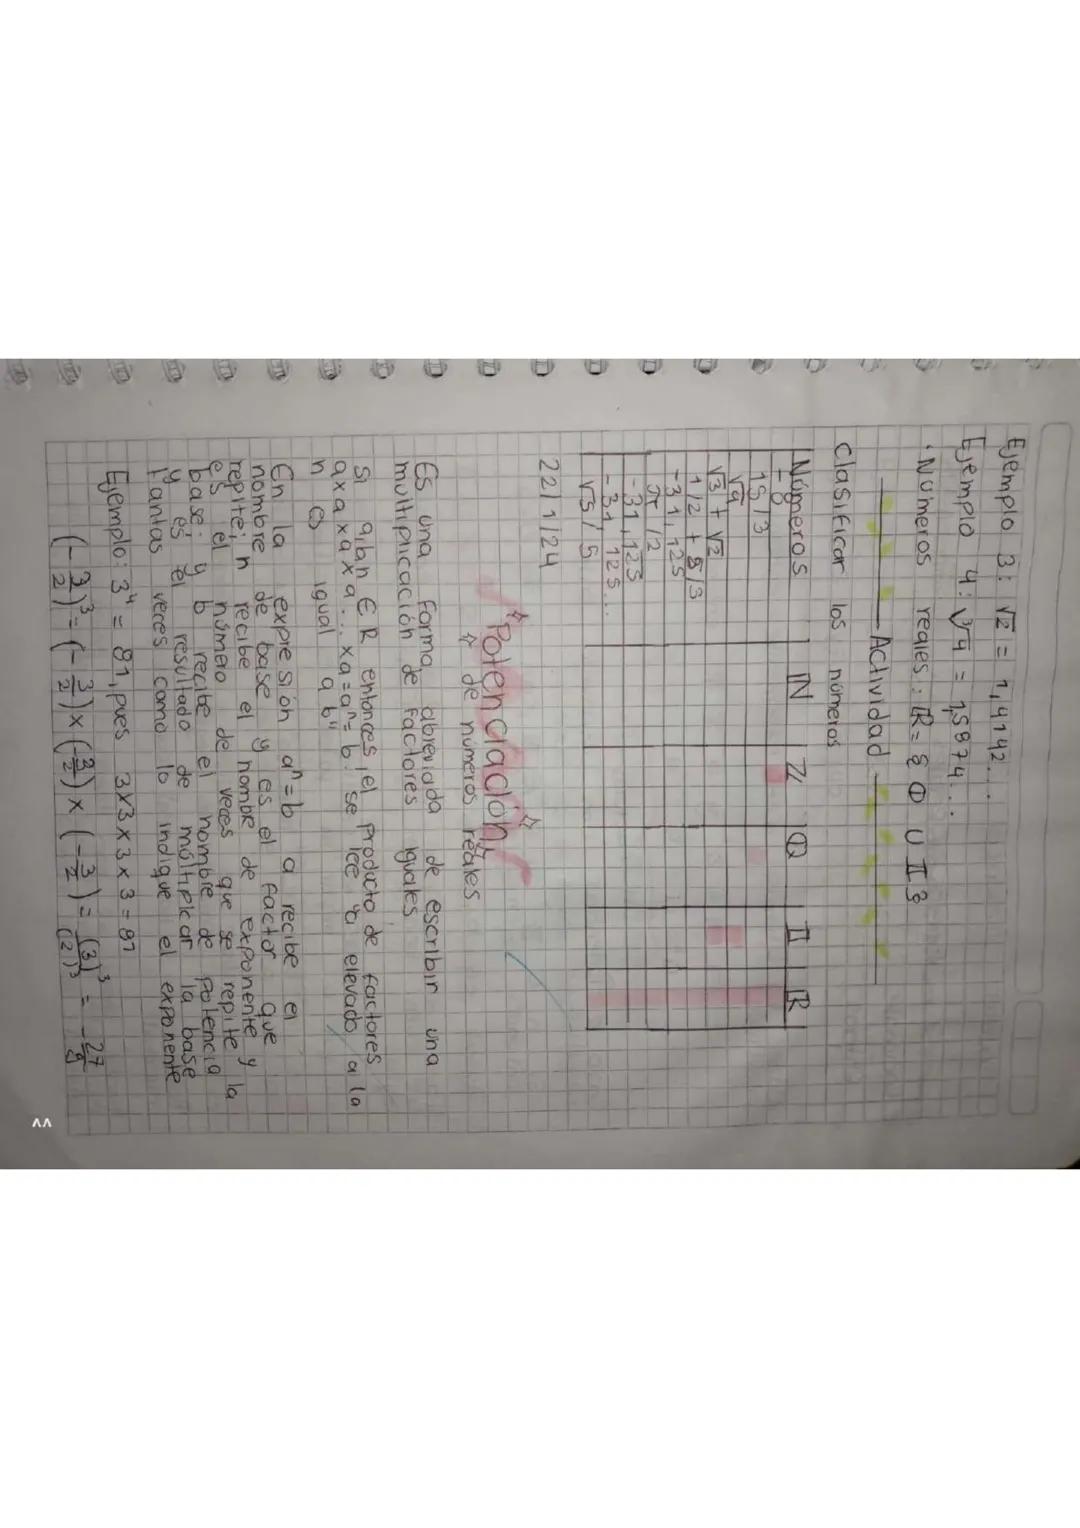 Ejemplo 3: √2 = 1,4142...
Ejemplo 4: ∛4 = 1,5874...
· Números reales: ℝ = { ℚ ∪ 𝕀 }
Actividad
Clasificar los números
Números ℕ ℤ ℚ 𝕀 ℝ
-8
15/3
√9
√3 + √2
1/2 + 5/3
-31,125
π/2
-31,125
-31,125...
√5/5
22/1/24
Potenciación
de números reales
Es una forma abreviada de escribir una
multiplicación de factores iguales
Si a,b,n ∈ R entonces, el producto de factores
axaxaxa...xa=aⁿ=b. se lee "a elevado a la
n es igual a b"
En la expresión aⁿ=b a recibe el
nombre de base y es el factor que
repite; n recibe el nombre de exponente y
es el número de veces que se repite la
base; y b recibe el nombre de potencia
y es el resultado de múltiplicar la base
tantas veces como lo indique el exponente
Ejemplo: 3⁴ = 81, pues 3x3x3x3=81
(-3/2)³=(-3/2)x(-3/2)x(-3/2)=(3)³/(2)³ = -27/9
^^